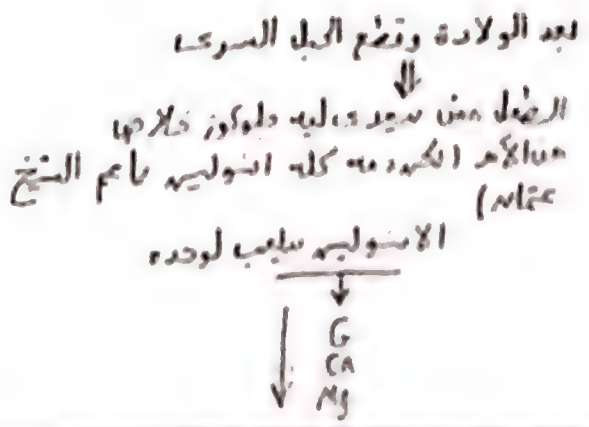 بعد الولادة وقطع الحبل السرى
⇓
الطفل مش بيعدى ليه جلوكوز خلاص
من الأم الكهرمه كله انسولين ياعم الشيخ
عثمان)
الانسولين بيلعب لوحده
↓ G
Ca
Mg